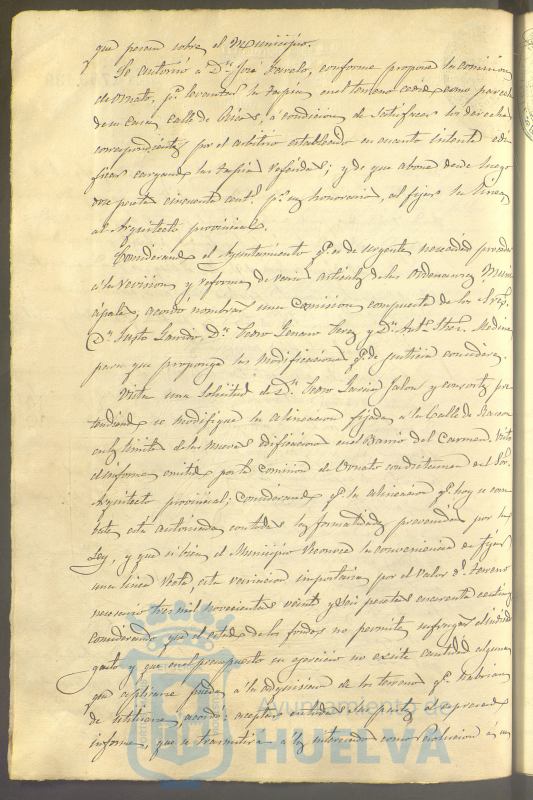 que pesan sobre el Municipio.
Se autorizó a Dn. José Varelo, conforme propone la comision
de ornato, pa. levantar la tapia en el terreno como parcel
de su casa calle de Rias, á condicion de satisfacer los derechos
correspondientes por el arbitrio establecido en cuanto intente edi-
ficar cargando las tapias referidas; y de que abone desde luego
once pesetas cincuenta cents. pr. sus honorarios, al fijar la linea,
al Arquitecto provincial.
Considerando el Ayuntamiento qe. es de urgente necesidad proceder
á la revision y reforma de varios articulos de las ordenanzas Muni-
cipales, acordó nombrar una comision compuesta de los Sres.
Dn. Justo Garrido, Dn. Pedro Genaro Perez y Dn. Anto. Medina,
para que proponga las modificaciones qe. de justicia considere.
Vista una solicitud de Dn. Pedro Garcia Jalon y consortes pre-
tendiendo se modifique la alineacion fijada a la calle de
en el limite de las nuevas edificaciones en el Barrio del Carmen. Visto
el informe emitido por la comision de Ornato con dictamen del Sor.
Arquitecto provincial; considerando qe. la alineacion qe. hoy se com-
bate está autorizada con todas las formalidades prevenidas por la
Ley, y que si bien el Municipio reconoce la conveniencia de fijar
una linea recta, esta variacion importaria por el valor del terreno
necesario tres mil novecientas veinte y seis pesetas cuarenta centimos
considerando que el estado de los fondos no permite sufragar el indicado
gasto y que en el presupuesto en ejercicio no existe cantidad alguna
que aplicarse pueda á la adquisicion de los terrenos qe. habrian
de utilizarse, acordó: aceptar en todas sus partes el expresado
informe, que se trasmitirá á los interesados como resolucion á su
Ayuntamiento de
HUELVA